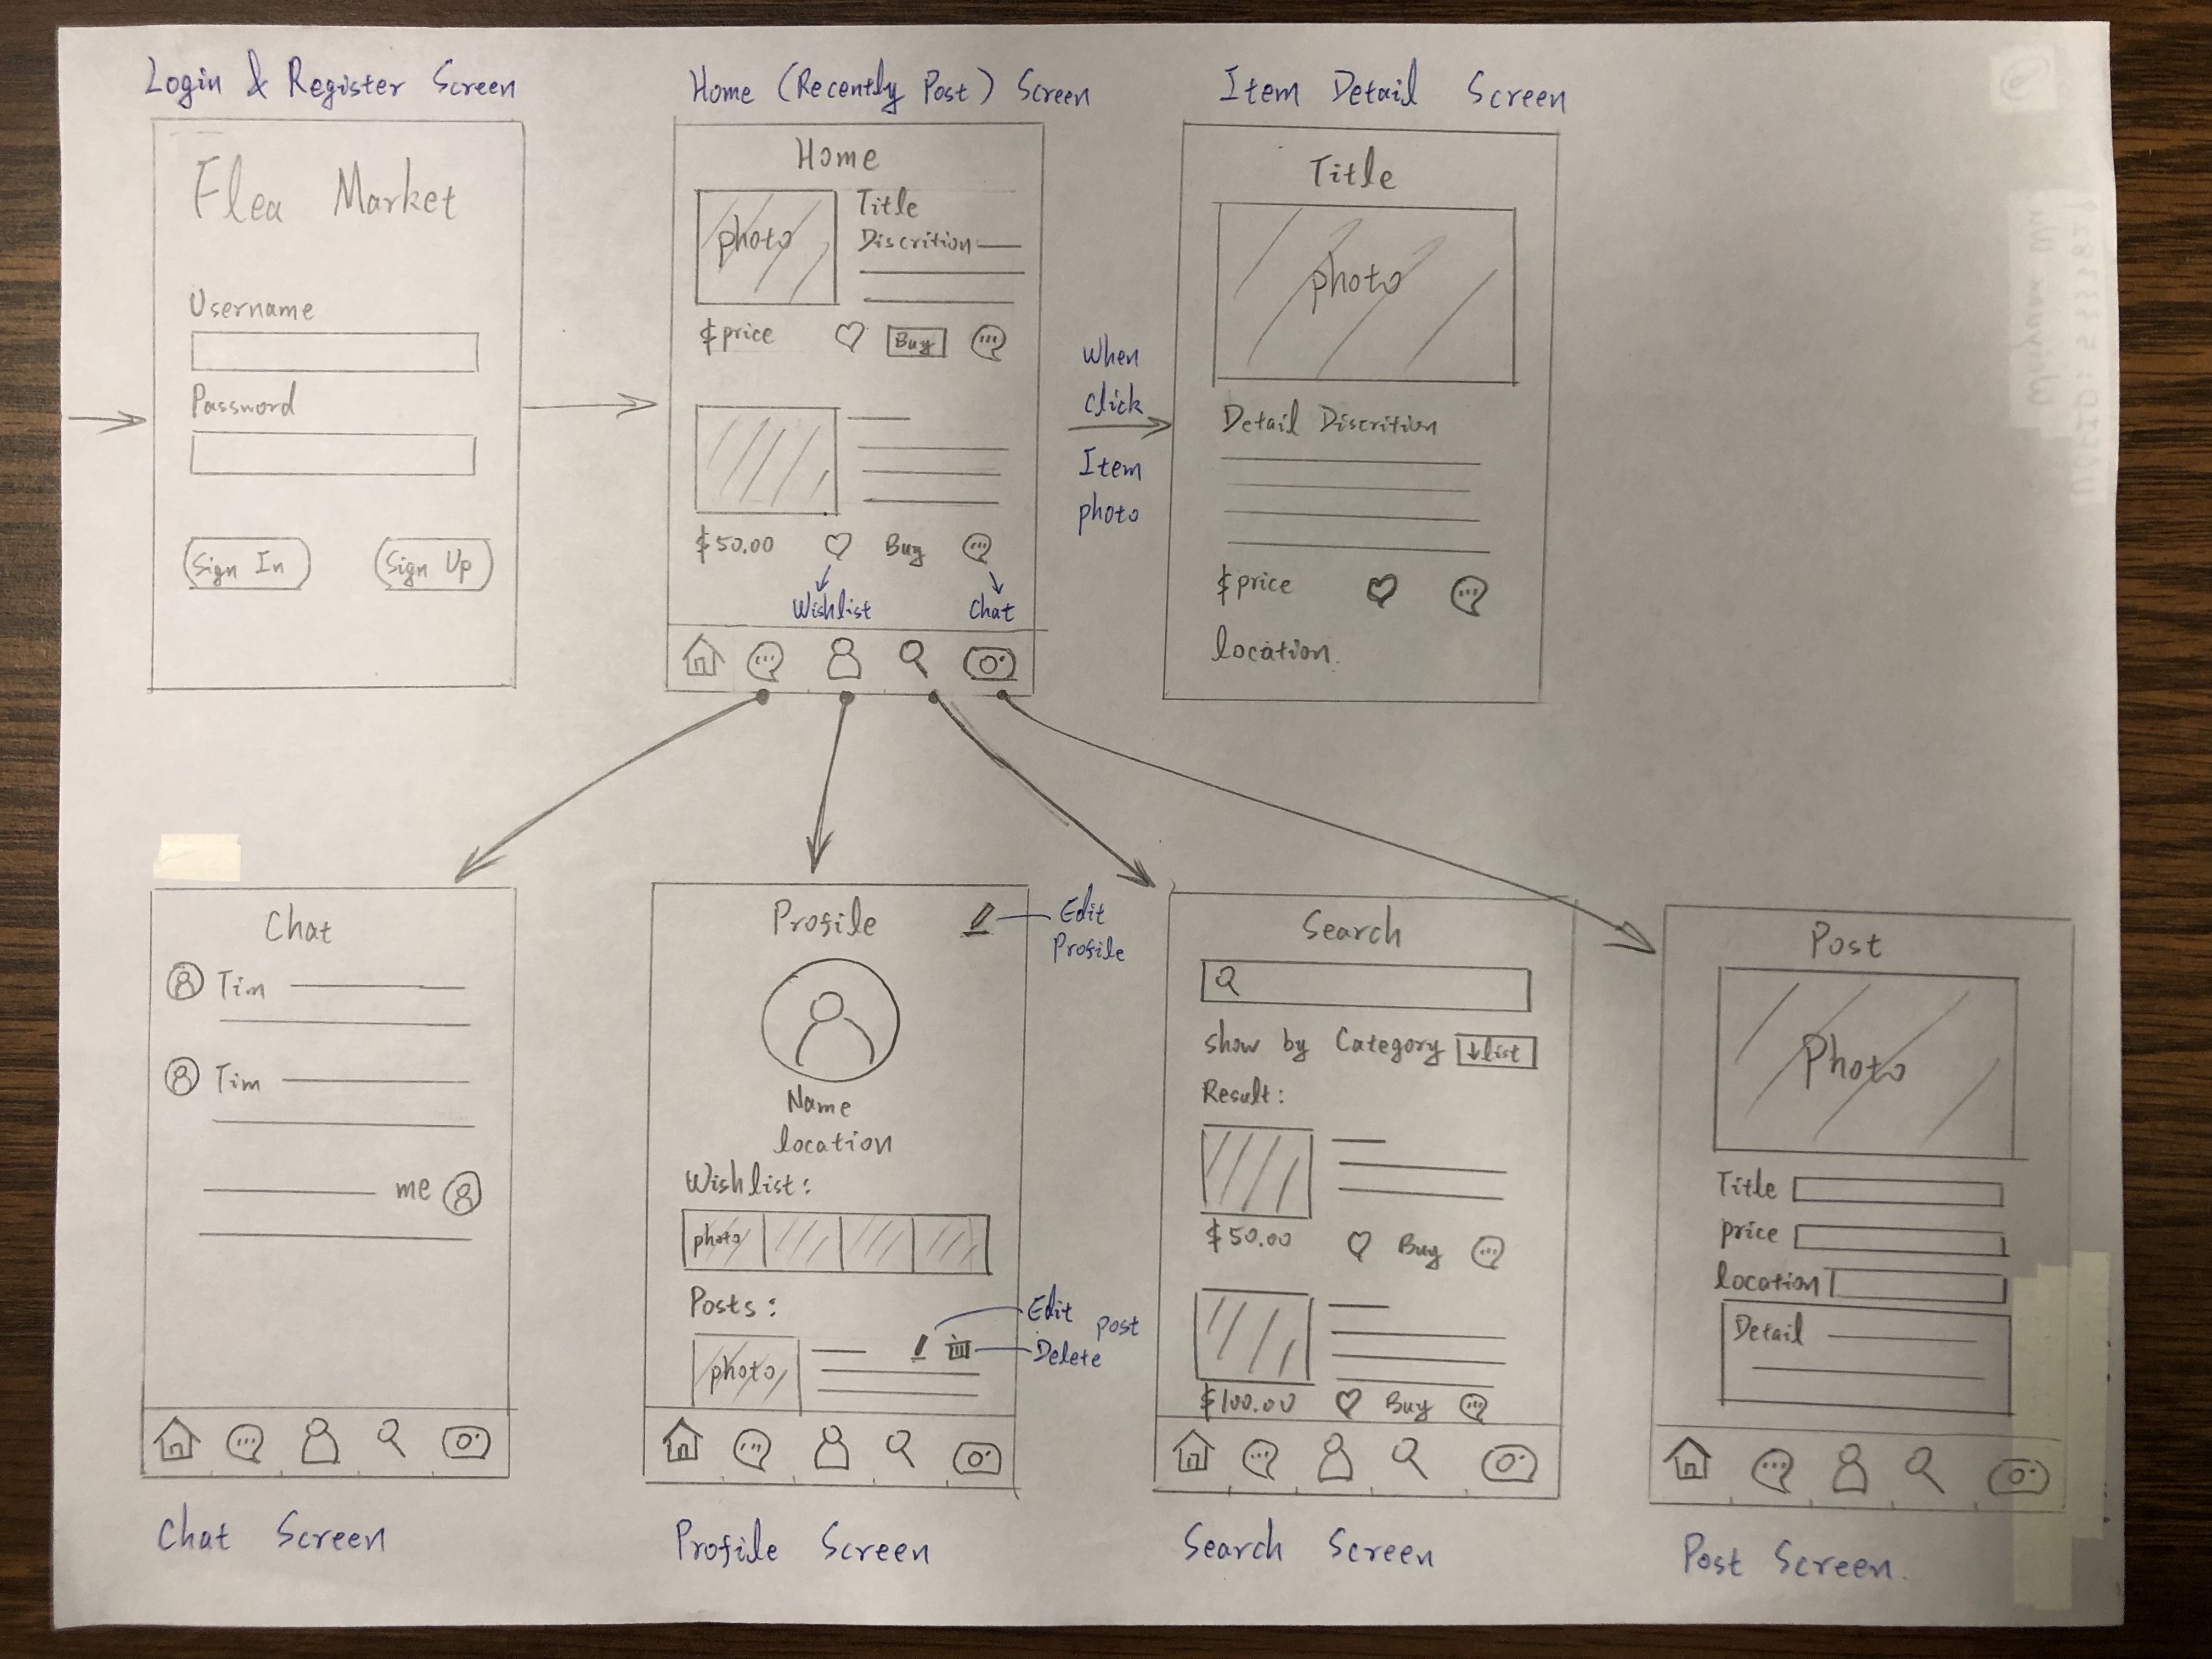 Login & Register Screen
Flea Market
Username
Password
Sign In
Sign Up
Home (Recently Post) Screen
Home
photo
Title
Discrition
$price
Buy
$50.00
Buy
Wishlist
Chat
When
click
Item
photo
Item Detail Screen
Title
photo
Detail Discrition
$price
location.
Chat
Tim
Tim
me
Chat Screen
Profile
Edit
Profile
Name
location
Wishlist:
photo
Posts:
Edit post
Delete
photo
Profile Screen
Search
show by Category ↓list
Result:
$50.00
Buy
$100.00
Buy
Search Screen
Post
Photo
Title
price
location
Detail
Post Screen.